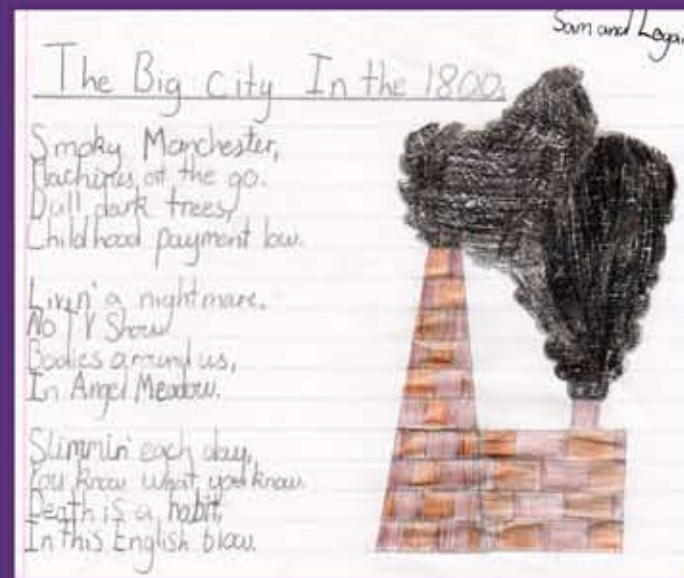 Sam and Logan
The Big City In the 1800s
Smoky Manchester,
Machines on the go.
Dull dark trees,
Childhood payment low.
Livin' a nightmare.
No TV Show
Bodies around us,
In Angel Meadow.
Slimmin' each day,
You know what you know.
Death is a habit,
In this English blow.